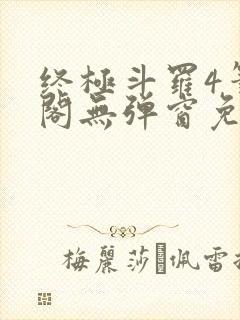 終極斗羅4
閣無彈窗免
梅麗莎 佩雷